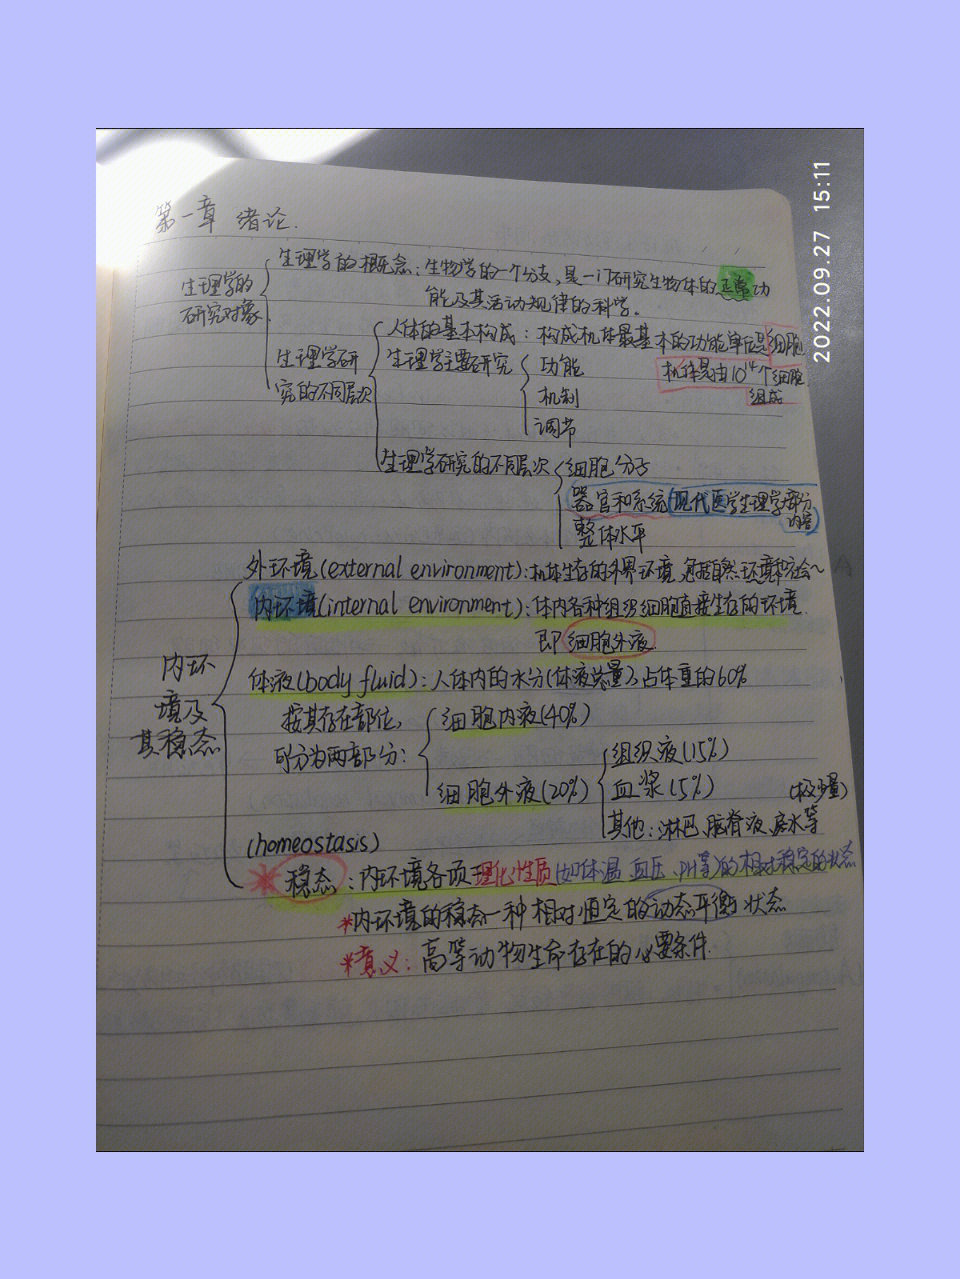 第一章 绪论.
生理学的研究对象
生理学的概念：生物学的一个分支，是一门研究生物体的正常功
能及其活动规律的科学。
生理学研
究的不同层次
人体的基本构成：构成机体最基本的功能单位是细胞
机体是由10¹⁴个细胞
组成
生理学主要研究
功能
机制
调节
生理学研究的不同层次
细胞分子
器官和系统(现代医学生理学部分
内容)
整体水平
内环
境及
其稳态
外环境(external environment):机体生存的外界环境,包括自然环境和社会~
内环境(internal environment):体内各种组织细胞直接生存的环境.
即细胞外液.
体液(body fluid):人体内的水分(体液总量),占体重的60%
按其存在部位,
可分为两部分:
细胞内液(40%)
细胞外液(20%)
组织液(15%)
血浆(5%)
(极少量)
其他:淋巴、脑脊液、房水等
(homeostasis)
*稳态:内环境各项理化性质(如体温、血压、PH等)的相对稳定的状态
*内环境的稳态一种相对恒定的动态平衡状态
*意义:高等动物生命存在的必要条件.
2022.09.27 15:11